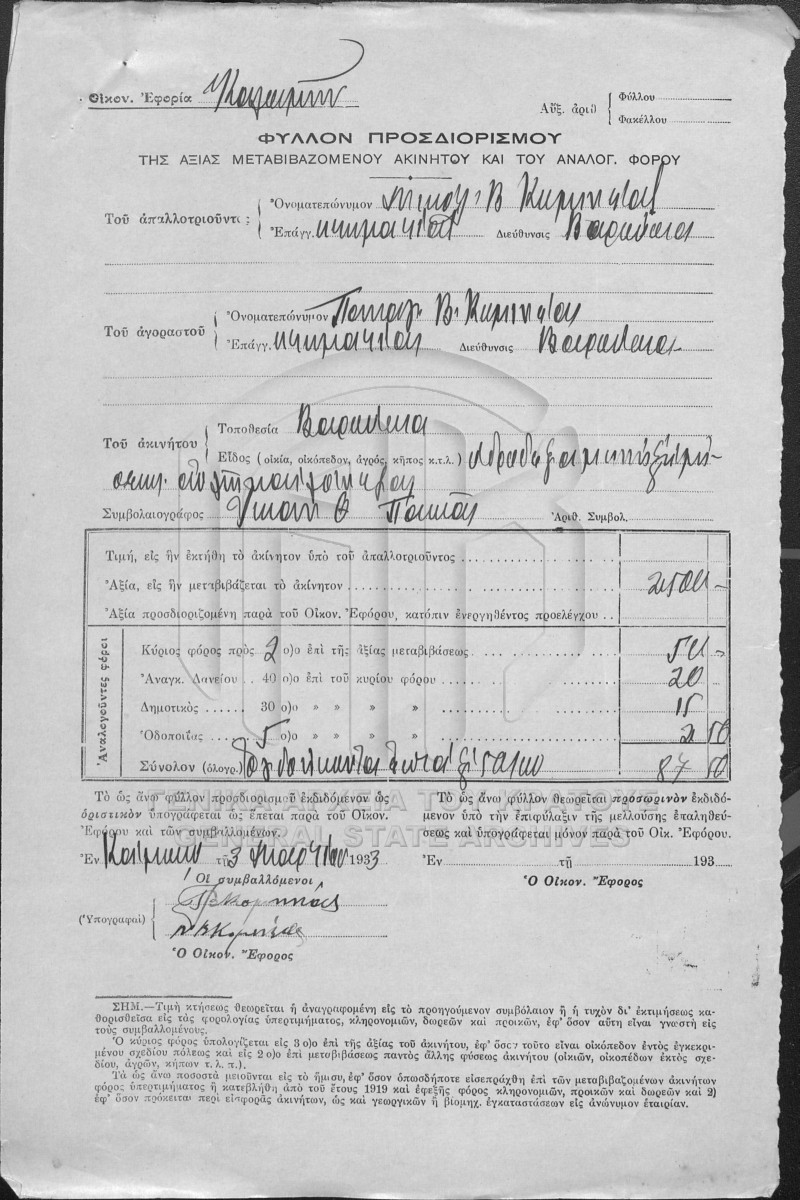 Οἰκον. Ἐφορία Καλαμῶν
Αὔξ. ἀριθ
Φύλλου
Φακέλλου
ΦΥΛΛΟΝ ΠΡΟΣΔΙΟΡΙΣΜΟΥ
ΤΗΣ ΑΞΙΑΣ ΜΕΤΑΒΙΒΑΖΟΜΕΝΟΥ ΑΚΙΝΗΤΟΥ ΚΑΙ ΤΟΥ ΑΝΑΛΟΓ. ΦΟΡΟΥ
Τοῦ ἀπαλλοτριοῦντος
Ὀνοματεπώνυμον Β
Ἐπάγγ. κτηματίας Διεύθυνσις
Τοῦ ἀγοραστοῦ
Ὀνοματεπώνυμον Παναγ. Β.
Ἐπάγγ. κτηματίας Διεύθυνσις
Τοῦ ἀκινήτου
Τοποθεσία
Εἶδος (οἰκία, οἰκόπεδον, ἀγρός, κῆπος κ.τ.λ.)
Συμβολαιογράφος Ἀριθ. Συμβολ.
Τιμή, εἰς ἣν ἐκτήθη τὸ ἀκίνητον ὑπὸ τοῦ ἀπαλλοτριοῦντος
Ἀξία, εἰς ἣν μεταβιβάζεται τὸ ἀκίνητον 2500 -
Ἀξία προσδιοριζομένη παρὰ τοῦ Οἰκον. Ἐφόρου, κατόπιν ἐνεργηθέντος προελέγχου
Ἀναλογοῦντες φόροι
Κύριος φόρος πρὸς 2 ο)ο ἐπὶ τῆς ἀξίας μεταβιβάσεως 50 -
Ἀναγκ. Δανείου 40 ο)ο ἐπὶ τοῦ κυρίου φόρου 20
Δημοτικὸς 30 ο)ο » » » » 15
Ὁδοποιΐας 5 ο)ο » » » » 2 50
Σύνολον (ὁλογρ.) Ὀγδοήκοντα ἑπτὰ 87 50
Τὸ ὡς ἄνω φύλλον προσδιορισμοῦ ἐκδιδόμενον ὡς
ὁριστικὸν ὑπογράφεται ὡς ἕπεται παρὰ τοῦ Οἰκον.
Ἐφόρου καὶ τῶν συμβαλλομένων.
Ἐν Καλάμαις τῇ 3 Μαρτίου 1933
Οἱ συμβαλλόμενοι
(Ὑπογραφαί)
Ὁ Οἰκον. Ἔφορος
Τὸ ὡς ἄνω φύλλον θεωρεῖται προσωρινὸν ἐκδιδό-
μενον ὑπὸ τὴν ἐπιφύλαξιν τῆς μελλούσης ἐπαληθεύ-
σεως καὶ ὑπογράφεται μόνον παρὰ τοῦ Οἰκ. Ἐφόρου.
Ἐν τῇ 193
Ὁ Οἰκον. Ἔφορος
ΓΕΝΙΚΑ ΑΡΧΕΙΑ ΤΟΥ ΚΡΑΤΟΥΣ
GENERAL STATE ARCHIVES
ΣΗΜ.—Τιμὴ κτήσεως θεωρεῖται ἡ ἀναγραφομένη εἰς τὸ προηγούμενον συμβόλαιον ἢ ἡ τυχὸν δι' ἐκτιμήσεως κα-
θορισθεῖσα εἰς τὰς φορολογίας ὑπερτιμήματος, κληρονομιῶν, δωρεῶν καὶ προικῶν, ἐφ' ὅσον αὕτη εἶναι γνωστὴ εἰς
τοὺς συμβαλλομένους.
Ὁ κύριος φόρος ὑπολογίζεται εἰς 3 ο)ο ἐπὶ τῆς ἀξίας τοῦ ἀκινήτου, ἐφ' ὅσον τοῦτο εἶναι οἰκόπεδον ἐντὸς ἐγκεκρι-
μένου σχεδίου πόλεως καὶ εἰς 2 ο)ο ἐπὶ μεταβιβάσεως παντὸς ἄλλης φύσεως ἀκινήτου (οἰκιῶν, οἰκοπέδων ἐκτὸς σχε-
δίου, ἀγρῶν, κήπων τ. λ. π.).
Τὰ ὡς ἄνω ποσοστὰ μειοῦνται εἰς τὸ ἥμισυ, ἐφ' ὅσον ὁπωσδήποτε εἰσεπράχθη ἐπὶ τῶν μεταβιβαζομένων ἀκινήτων
φόρος ὑπερτιμήματος ἢ κατεβλήθη ἀπὸ τοῦ ἔτους 1919 καὶ ἐφεξῆς φόρος κληρονομιῶν, προικῶν καὶ δωρεῶν καὶ 2)
ἐφ' ὅσον πρόκειται περὶ εἰσφορᾶς ἀκινήτων, ὡς καὶ γεωργικῶν ἢ βιομηχ. ἐγκαταστάσεων εἰς ἀνώνυμον ἑταιρίαν.